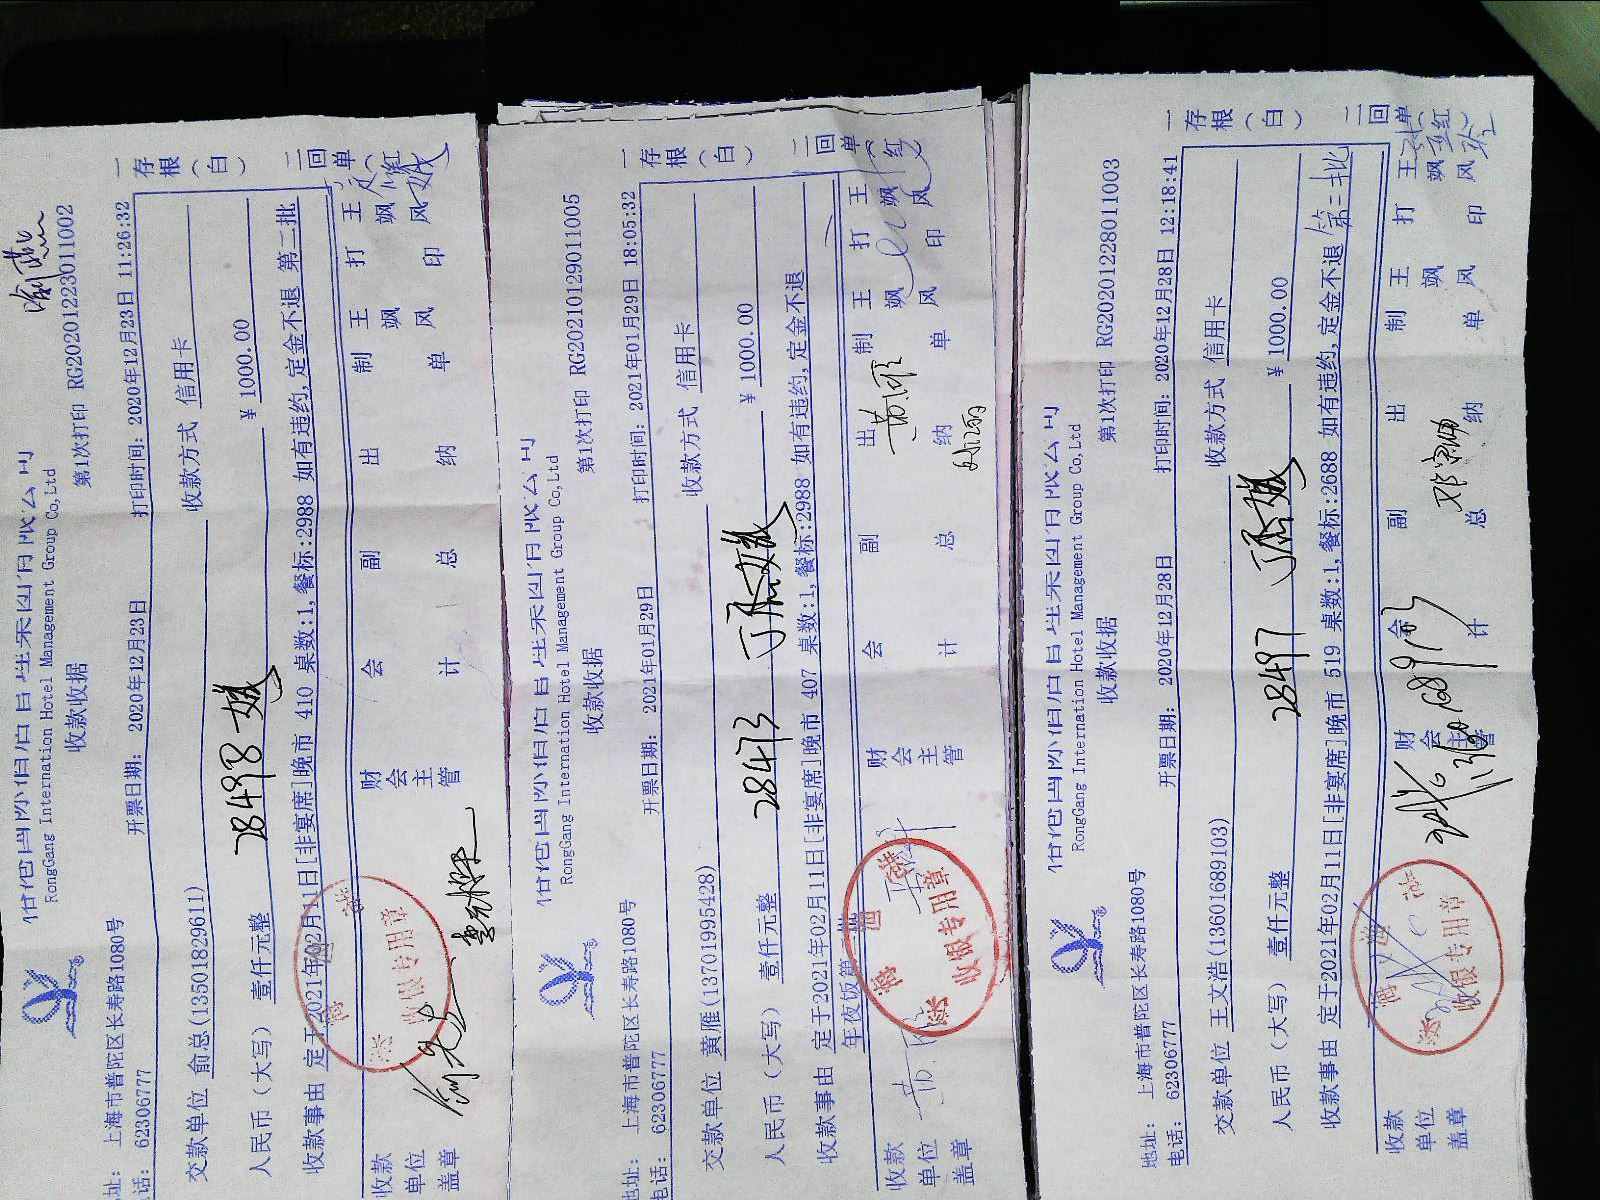 RongGang International Hotel Management Group Co,Ltd
收款收据
第1次打印 RG20201223011002
地址: 上海市普陀区长寿路1080号
电话: 62306777
开票日期: 2020年12月23日
打印时间: 2020年12月23日 11:26:32
交款单位 俞总(13501829611)
收款方式 信用卡
人民币(大写) 壹仟元整
28498
¥ 1000.00
收款事由 定于2021年02月11日[非宴席]晚市 410 桌数:1,餐标:2988 如有违约,定金不退 第二批
收款单位盖章
财会主管
会计
副总
出纳
制单 王飒风
打印 王飒风
一存根(白)
二回单(红)
收银专用章
RongGang International Hotel Management Group Co,Ltd
收款收据
第1次打印 RG20210129011005
地址: 上海市普陀区长寿路1080号
电话: 62306777
开票日期: 2021年01月29日
打印时间: 2021年01月29日 18:05:32
交款单位 黄雁(13701995428)
收款方式 信用卡
人民币(大写) 壹仟元整
28473
¥ 1000.00
收款事由 定于2021年02月11日[非宴席]晚市 407 桌数:1,餐标:2988 如有违约,定金不退
年夜饭第二批
收款单位盖章
财会主管
会计
副总
出纳
制单 王飒风
打印 王飒风
一存根(白)
二回单(红)
收银专用章
RongGang International Hotel Management Group Co,Ltd
收款收据
第1次打印 RG20201228011003
地址: 上海市普陀区长寿路1080号
电话: 62306777
开票日期: 2020年12月28日
打印时间: 2020年12月28日 12:18:41
交款单位 王文浩(13601689103)
收款方式 信用卡
人民币(大写) 壹仟元整
28497
¥ 1000.00
收款事由 定于2021年02月11日[非宴席]晚市 519 桌数:1,餐标:2688 如有违约,定金不退 第二批
收款单位盖章
财会主管
会计
副总
出纳
制单 王飒风
打印 王飒风
一存根(白)
二回单(红)
收银专用章